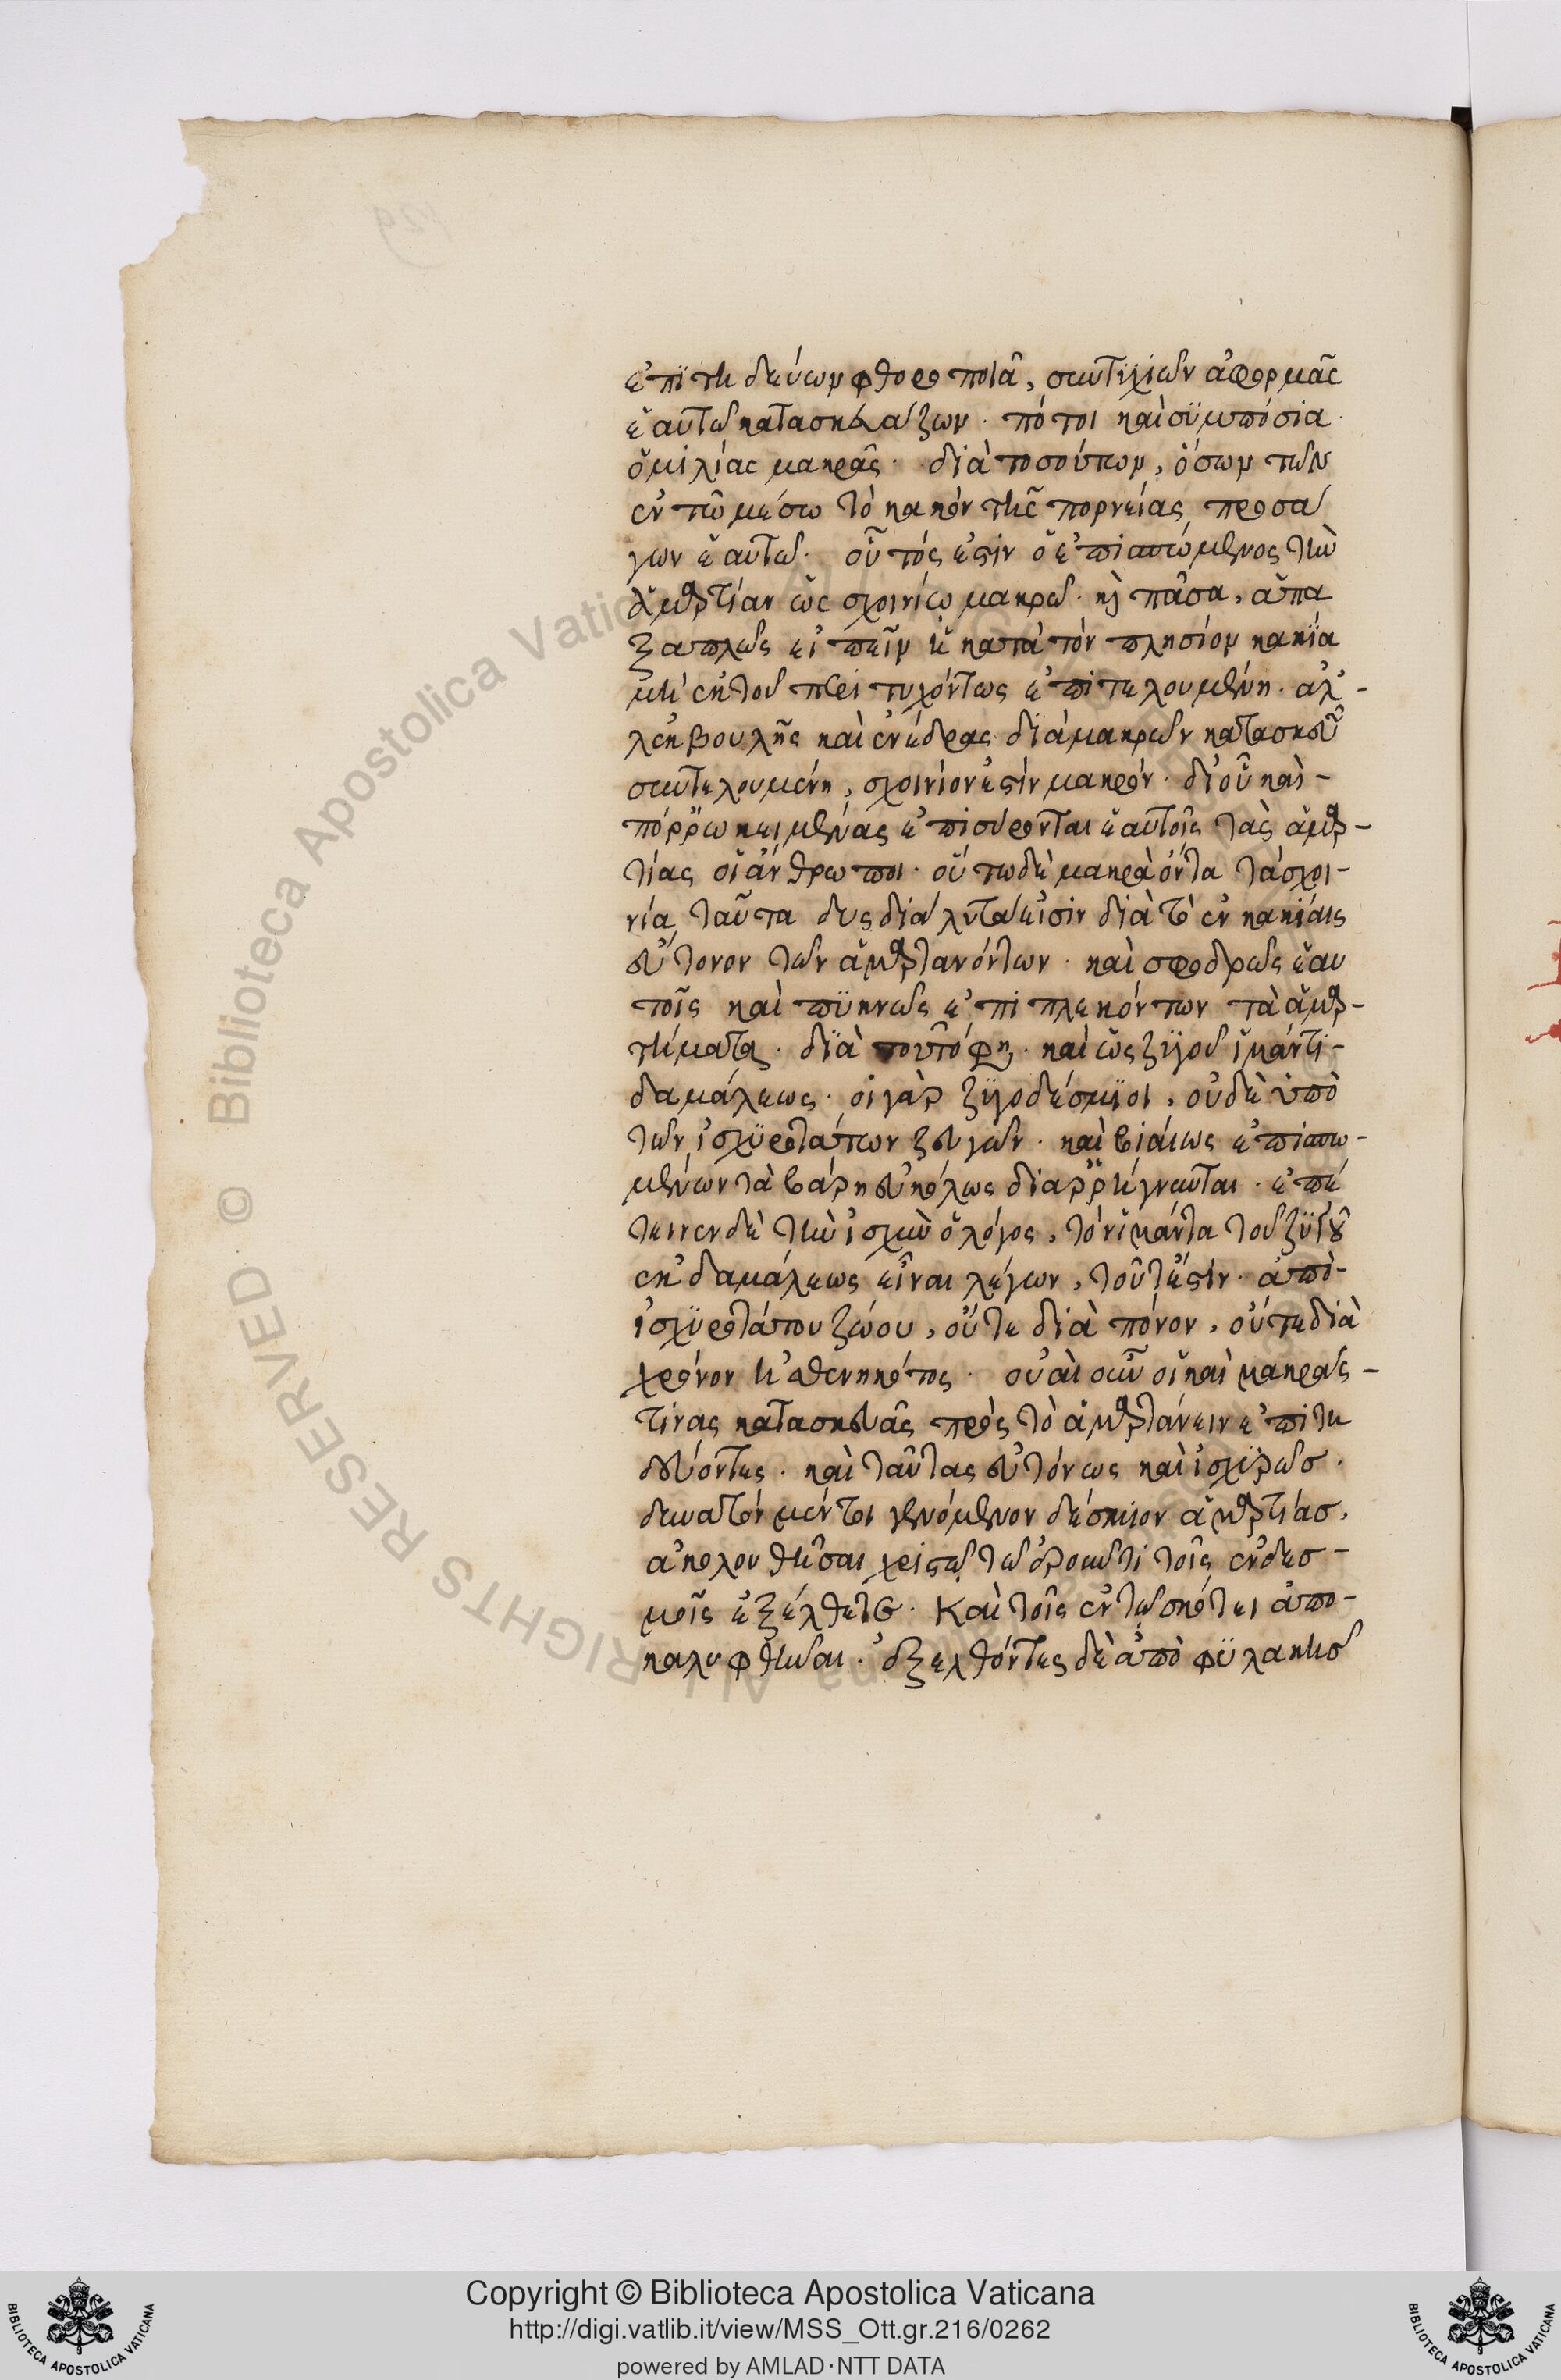 ἐπιτηδεύων φθοροποιὰ, συντυχιῶν ἀφορμὰς
ἑαυτῶ κατασκευάζων. πότοι καὶ συμπόσια.
ὁμιλίας μακρὰς. διὰ τοσούτων, ὅσων τῶν
ἐν τῶ μέσω τὸ κακὸν τῆς πορνείας προσά
γων ἑαυτῶ. οὗτός ἐστιν ὁ ἐπισπώμενος τὴν
ἁμαρτίαν ὡς σχοινίω μακρῶ. καὶ πᾶσα, ἅπα
ξαπλῶς εἰπεῖν ἡ κατὰ τὸν πλησίον κακία
μὴ ἐκ τοῦ περιτυχόντως ἐπιτελουμένη. ἀλ-
λ' ἐκ βουλῆς καὶ ἐνέδρας διὰ μακρῶν κατασκευῶν
συντελουμένη, σχοινίον ἐστὶν μακρόν. δι' οὗ καὶ-
πόρρω κειμένας ἐπισύρονται ἑαυτοῖς τὰς ἁμαρ-
τίας οἱ ἄνθρωποι. οὕτω δὲ μακρὰ ὄντα τὰ σχοι-
νία ταῦτα δυσδιάλυτα εἰσὶν διὰ τὸ ἐν κακίαις
εὔτονον τῶν ἁμαρτανόντων. καὶ σφοδρῶς ἑαυ
τοῖς καὶ πυκνῶς ἐπιπλεκόντων τὰ ἁμαρ-
τήματα. διὰ τοῦτό φησι. καὶ ὡς ζυγοῦ ἱμάντι-
δαμάλεως. οἱ γὰρ ζυγοδέσμιοι, οὐδὲ ὑπὸ
τῶν ἰσχυροτάτων ζευγῶν. καὶ βιαίως ἐπισπω-
μένων τὰ βάρη εὐκόλως διαρρήγνυνται. ἐπέ
τεινεν δὲ τὴν ἰσχὺν ὁ λόγος, τὸν ἱμάντα τοῦ ζυγοῦ
ἐκ δαμάλεως εἶναι λέγων, τοῦτέστιν. ἀπὸ-
ἰσχυροτάτου ζώου, οὔτε διὰ πόνον, οὔτε διὰ
χρόνον ἠσθενηκότος. οὐαὶ οὖν οἱ καὶ μακράς-
τινας κατασκευὰς πρὸς τὸ ἁμαρτάνειν ἐπιτη
δεύοντες. καὶ ταύτας εὐτόνως καὶ ἰσχυρῶσ.
δυνατὸν μέντοι γενόμενον δέσμιον ἁμαρτίασ,
ἀκολουθῆσαι χριστῶ τῶ ὁρουντι τοῖς ἐν δεσ-
μοῖς ἐξέλθετε. Καὶ τοῖς ἐν τῶ σκότει ἀπο-
καλυφθῆναι. ἐξελθόντες δὲ ἀπὸ φυλακῆσ
Copyright © Biblioteca Apostolica Vaticana
http://digi.vatlib.it/view/MSS_Ott.gr.216/0262
powered by AMLAD·NTT DATA